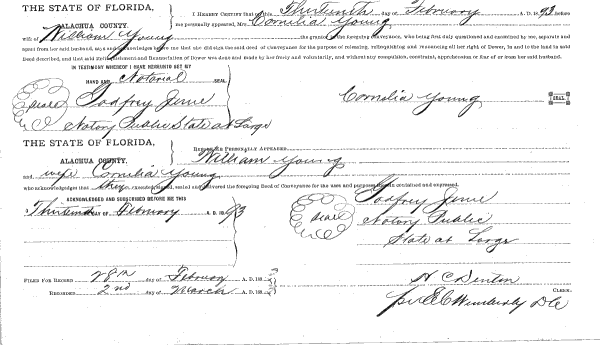 THE STATE OF FLORIDA,
ALACHUA COUNTY.
I HEREBY CERTIFY that on this Thirteenth day of February A. D. 1893 before
me personally appeared, Mrs. Cornelia Young
wife of William Young the grantor in the foregoing conveyance, who being first duly questioned and examined by me, separate and
apart from her said husband, says and acknowledges before me that she did sign the said deed of conveyance for the purpose of releasing, relinquishing and renouncing all her right of Dower, in and to the land in said
Deed described, and that said and Renunciation of Dower was done and made by her freely and voluntarily, and without any compulsion, constraint, apprehension or fear of or from her said husband.
IN TESTIMONY WHEREOF I GAVE HEREUNTO SET MY
HAND AND Notarial SEAL
Seal Godfrey
Cornelia Young SEAL
Notary Public State at Large
THE STATE OF FLORIDA,
ALACHUA COUNTY.
BEFORE ME PERSONALLY APPEARED
William Young
and wife Cornelia Young
who acknowledges that they executed, signed, sealed and delivered the foregoing Deed of Conveyance for the uses and purposes herein contained and expressed.
ACKNOWLEDGED AND SUBSCRIBED BEFORE ME THIS
Thirteenth DAY OF February A. D. 1893
Godfrey
Seal
Notary Public
State at Large
FILED FOR RECORD 28th day of February A. D. 189
RECORDED 2nd day of March A. D. 189
H C Denton
CLERK.
per E C Wimberly D C